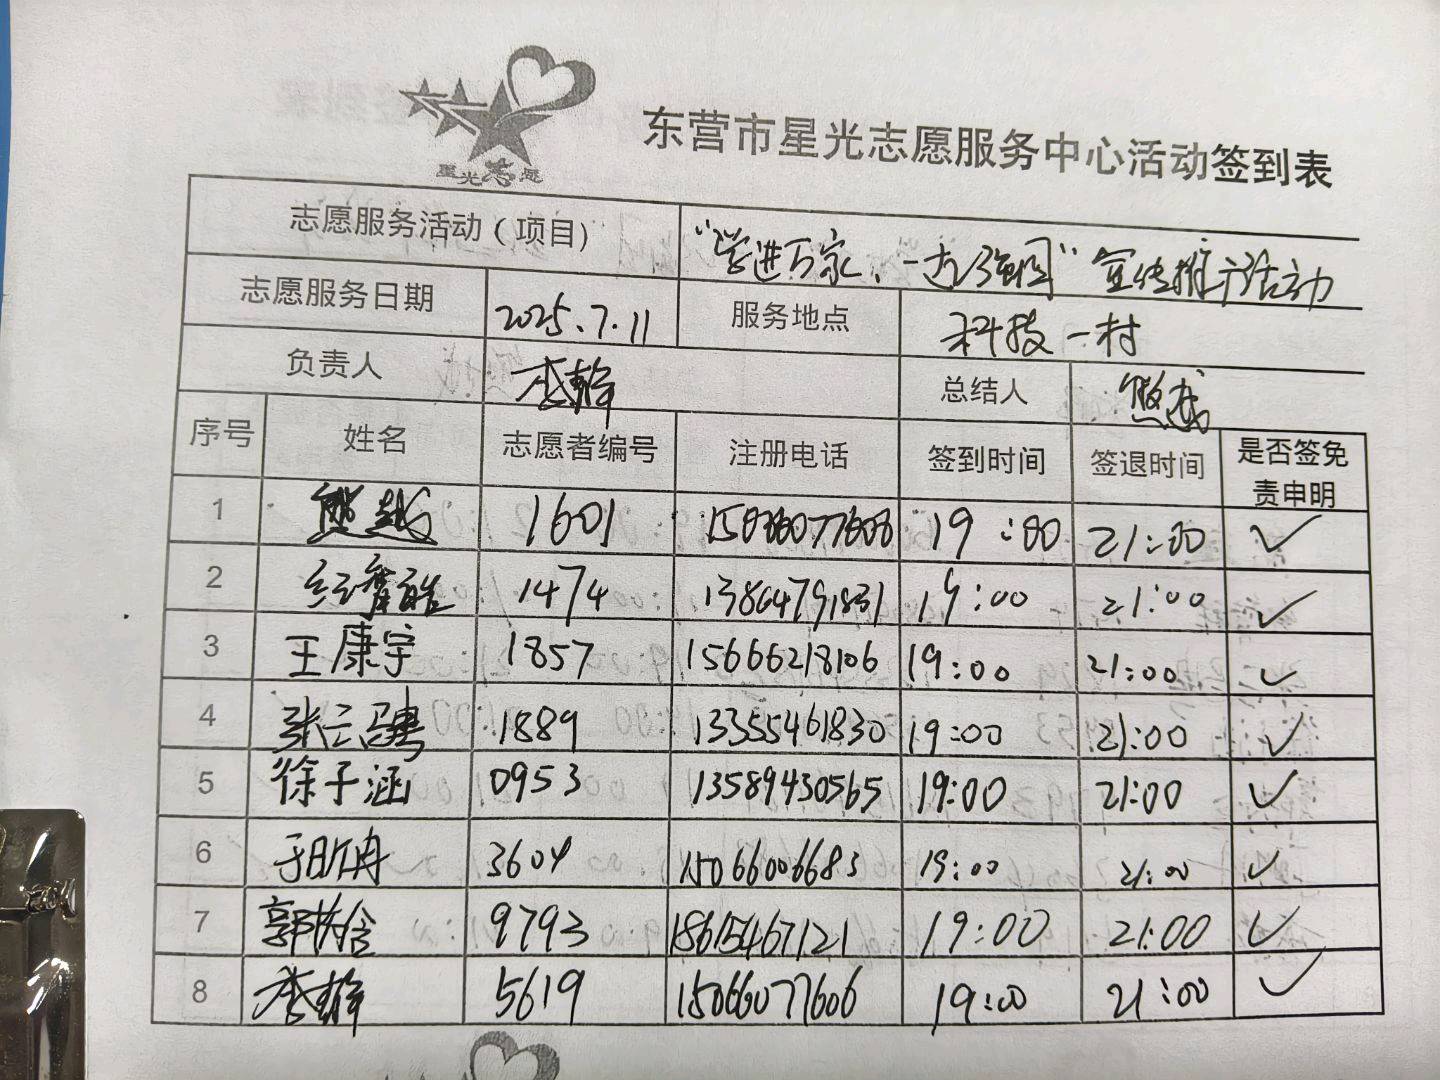 星光志愿
东营市星光志愿服务中心活动签到表
志愿服务活动（项目） "学进万家、一起强国"宣传推广活动
志愿服务日期 2025.7.11 服务地点 科技一村
负责人 李翰 总结人 熊越
序号 姓名 志愿者编号 注册电话 签到时间 签退时间 是否签免责申明
1 熊越 1601 19:00 21:00 ✓
2 1474 13864791831 19:00 21:00 ✓
3 王康宇 1857 15666218106 19:00 21:00 ✓
4 张云骋 1889 13355461830 19:00 21:00 ✓
5 徐子涵 0953 13589430565 19:00 21:00 ✓
6 于昕冉 3604 15066006683 19:00 21:00 ✓
7 9793 18615467121 19:00 21:00 ✓
8 李翰 5619 15066077606 19:00 21:00 ✓